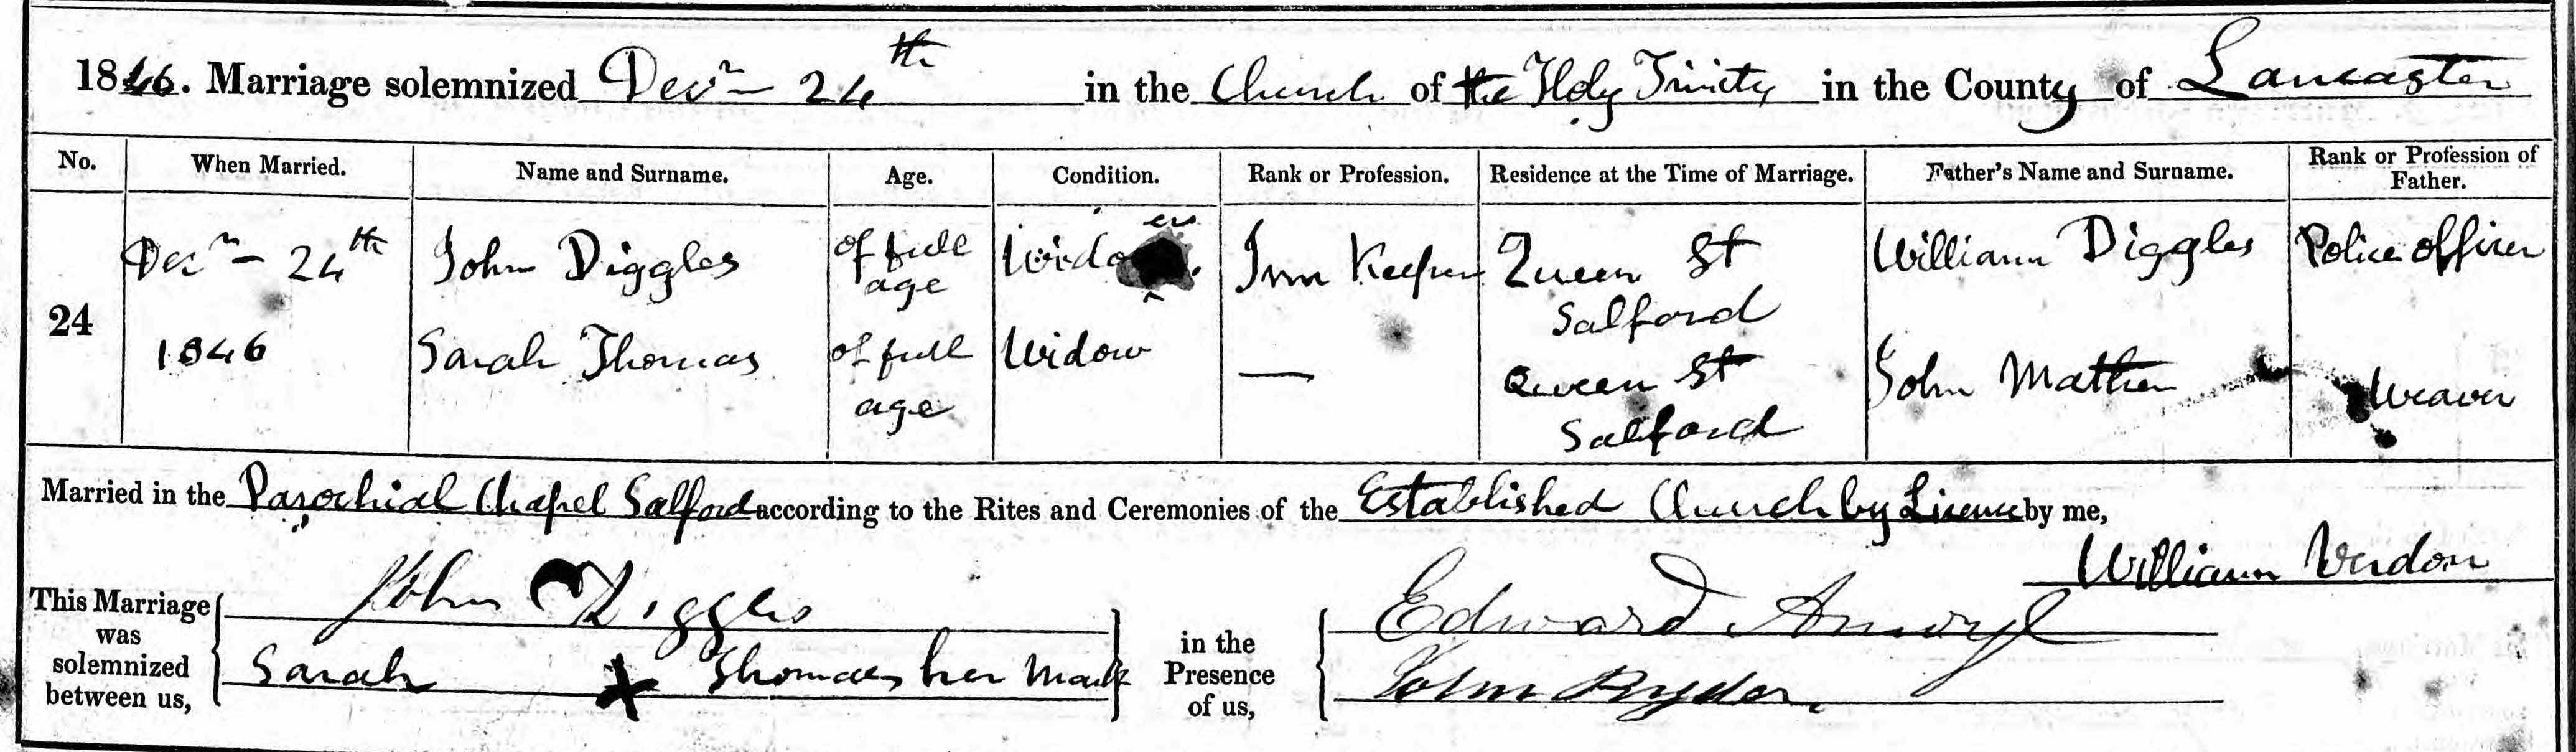 1846. Marriage solemnized Decr 24th in the Church of the Holy Trinity in the County of Lancaster
No. When Married. Name and Surname. Age. Condition. Rank or Profession. Residence at the Time of Marriage. Father's Name and Surname. Rank or Profession of Father.
24 Decr 24th John Diggles of full age Widower Inn Keeper Queen St Salford William Diggles Police officer
1846 Sarah Thomas of full age Widow — Queen St Salford John Mather Weaver
Married in the Parochial Chapel Salford according to the Rites and Ceremonies of the Established Church by Licence by me,
William Verdon
This Marriage was solemnized between us, John Diggles in the Presence of us, Edward
Sarah X Thomas her mark John Ryder